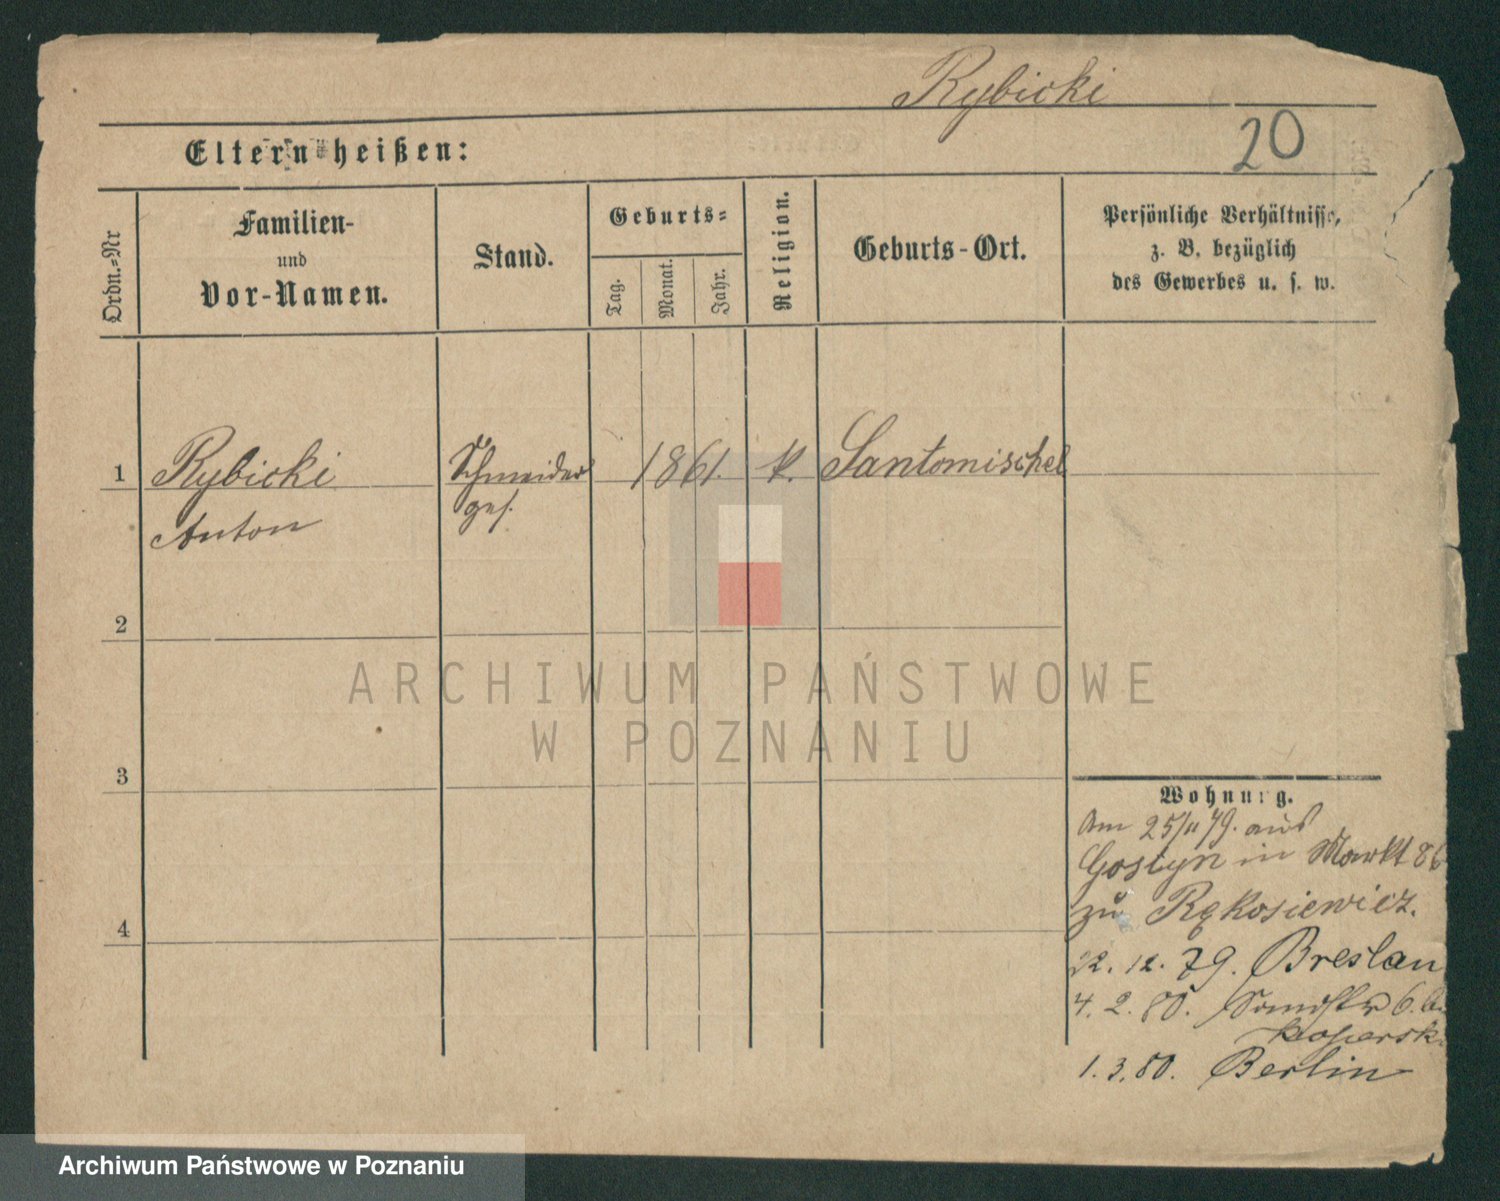 Rybicki
20
Eltern heißen:
Ordn.-Nr
Familien-
und
Vor-Namen.
Stand.
Geburts-
Tag.
Monat.
Jahr.
Religion.
Geburts-Ort.
Persönliche Verhältnisse,
z. B. bezüglich
des Gewerbes u. s. w.
1 Rybicki Schneider 1861. k. Santomischel
Anton ges.
2
ARCHIWUM PAŃSTWOWE
W POZNANIU
3
4
Wohnung.
Am 25/11 79. aus
Gostyn in Markt 86
zu Rękosiewicz.
22. 12. 79. Breslau
4. 2. 80. 6.
1. 3. 80. Berlin
Archiwum Państwowe w Poznaniu